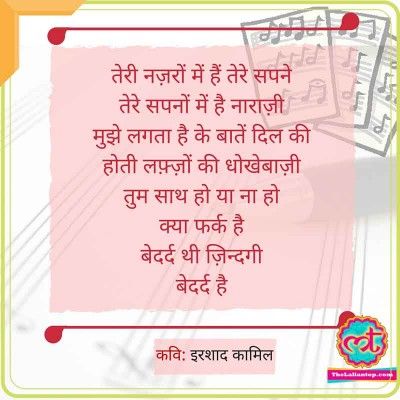 तेरी नज़रों में हैं तेरे सपने
तेरे सपनों में है नाराज़ी
मुझे लगता है के बातें दिल की
होती लफ़्ज़ों की धोखेबाज़ी
तुम साथ हो या ना हो
क्या फर्क है
बेदर्द थी ज़िन्दगी
बेदर्द है
कवि: इरशाद कामिल
TheLallantop.com